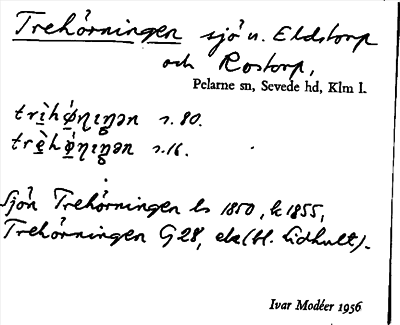 Trehörningen sjö n. Eldstorp
och Rostorp,
Pelarne sn, Sevede hd, Klm l.
s. 80.
s. 16.
Sjön Trehörningen ls 1850, k 1855,
Trehörningen G 28, ek (bl. Lidhult).
Ivar Modéer 1956